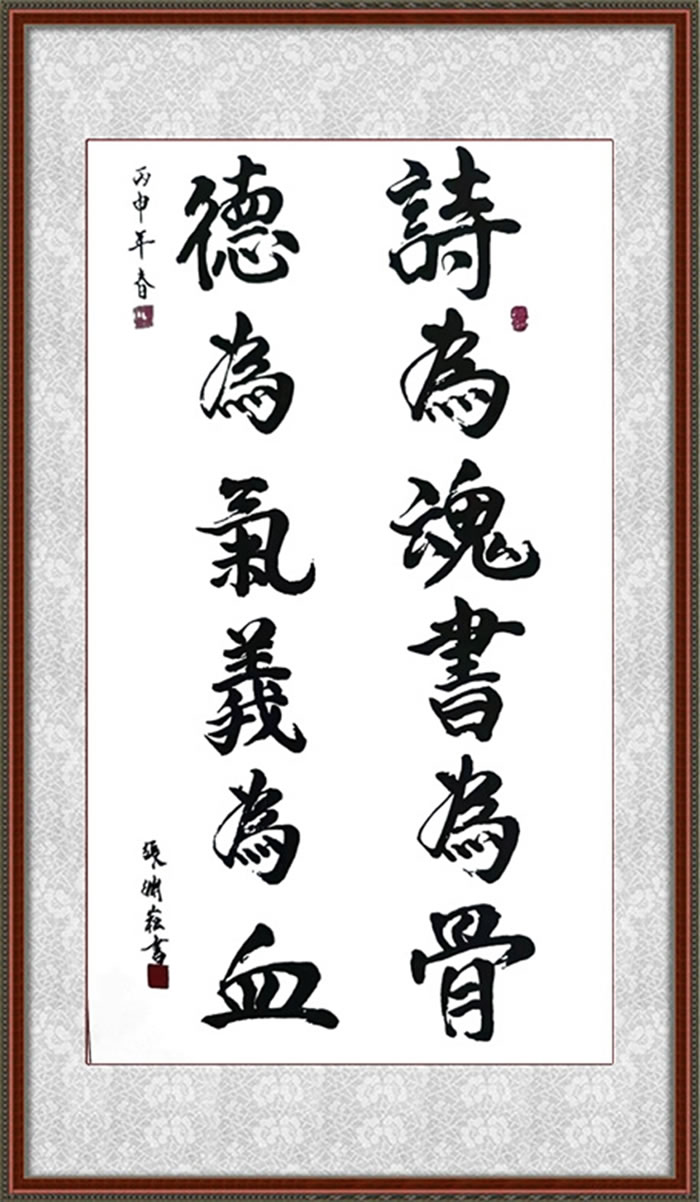 詩為魂書為骨
德為氣義為血
丙申年春
張嫻菘書